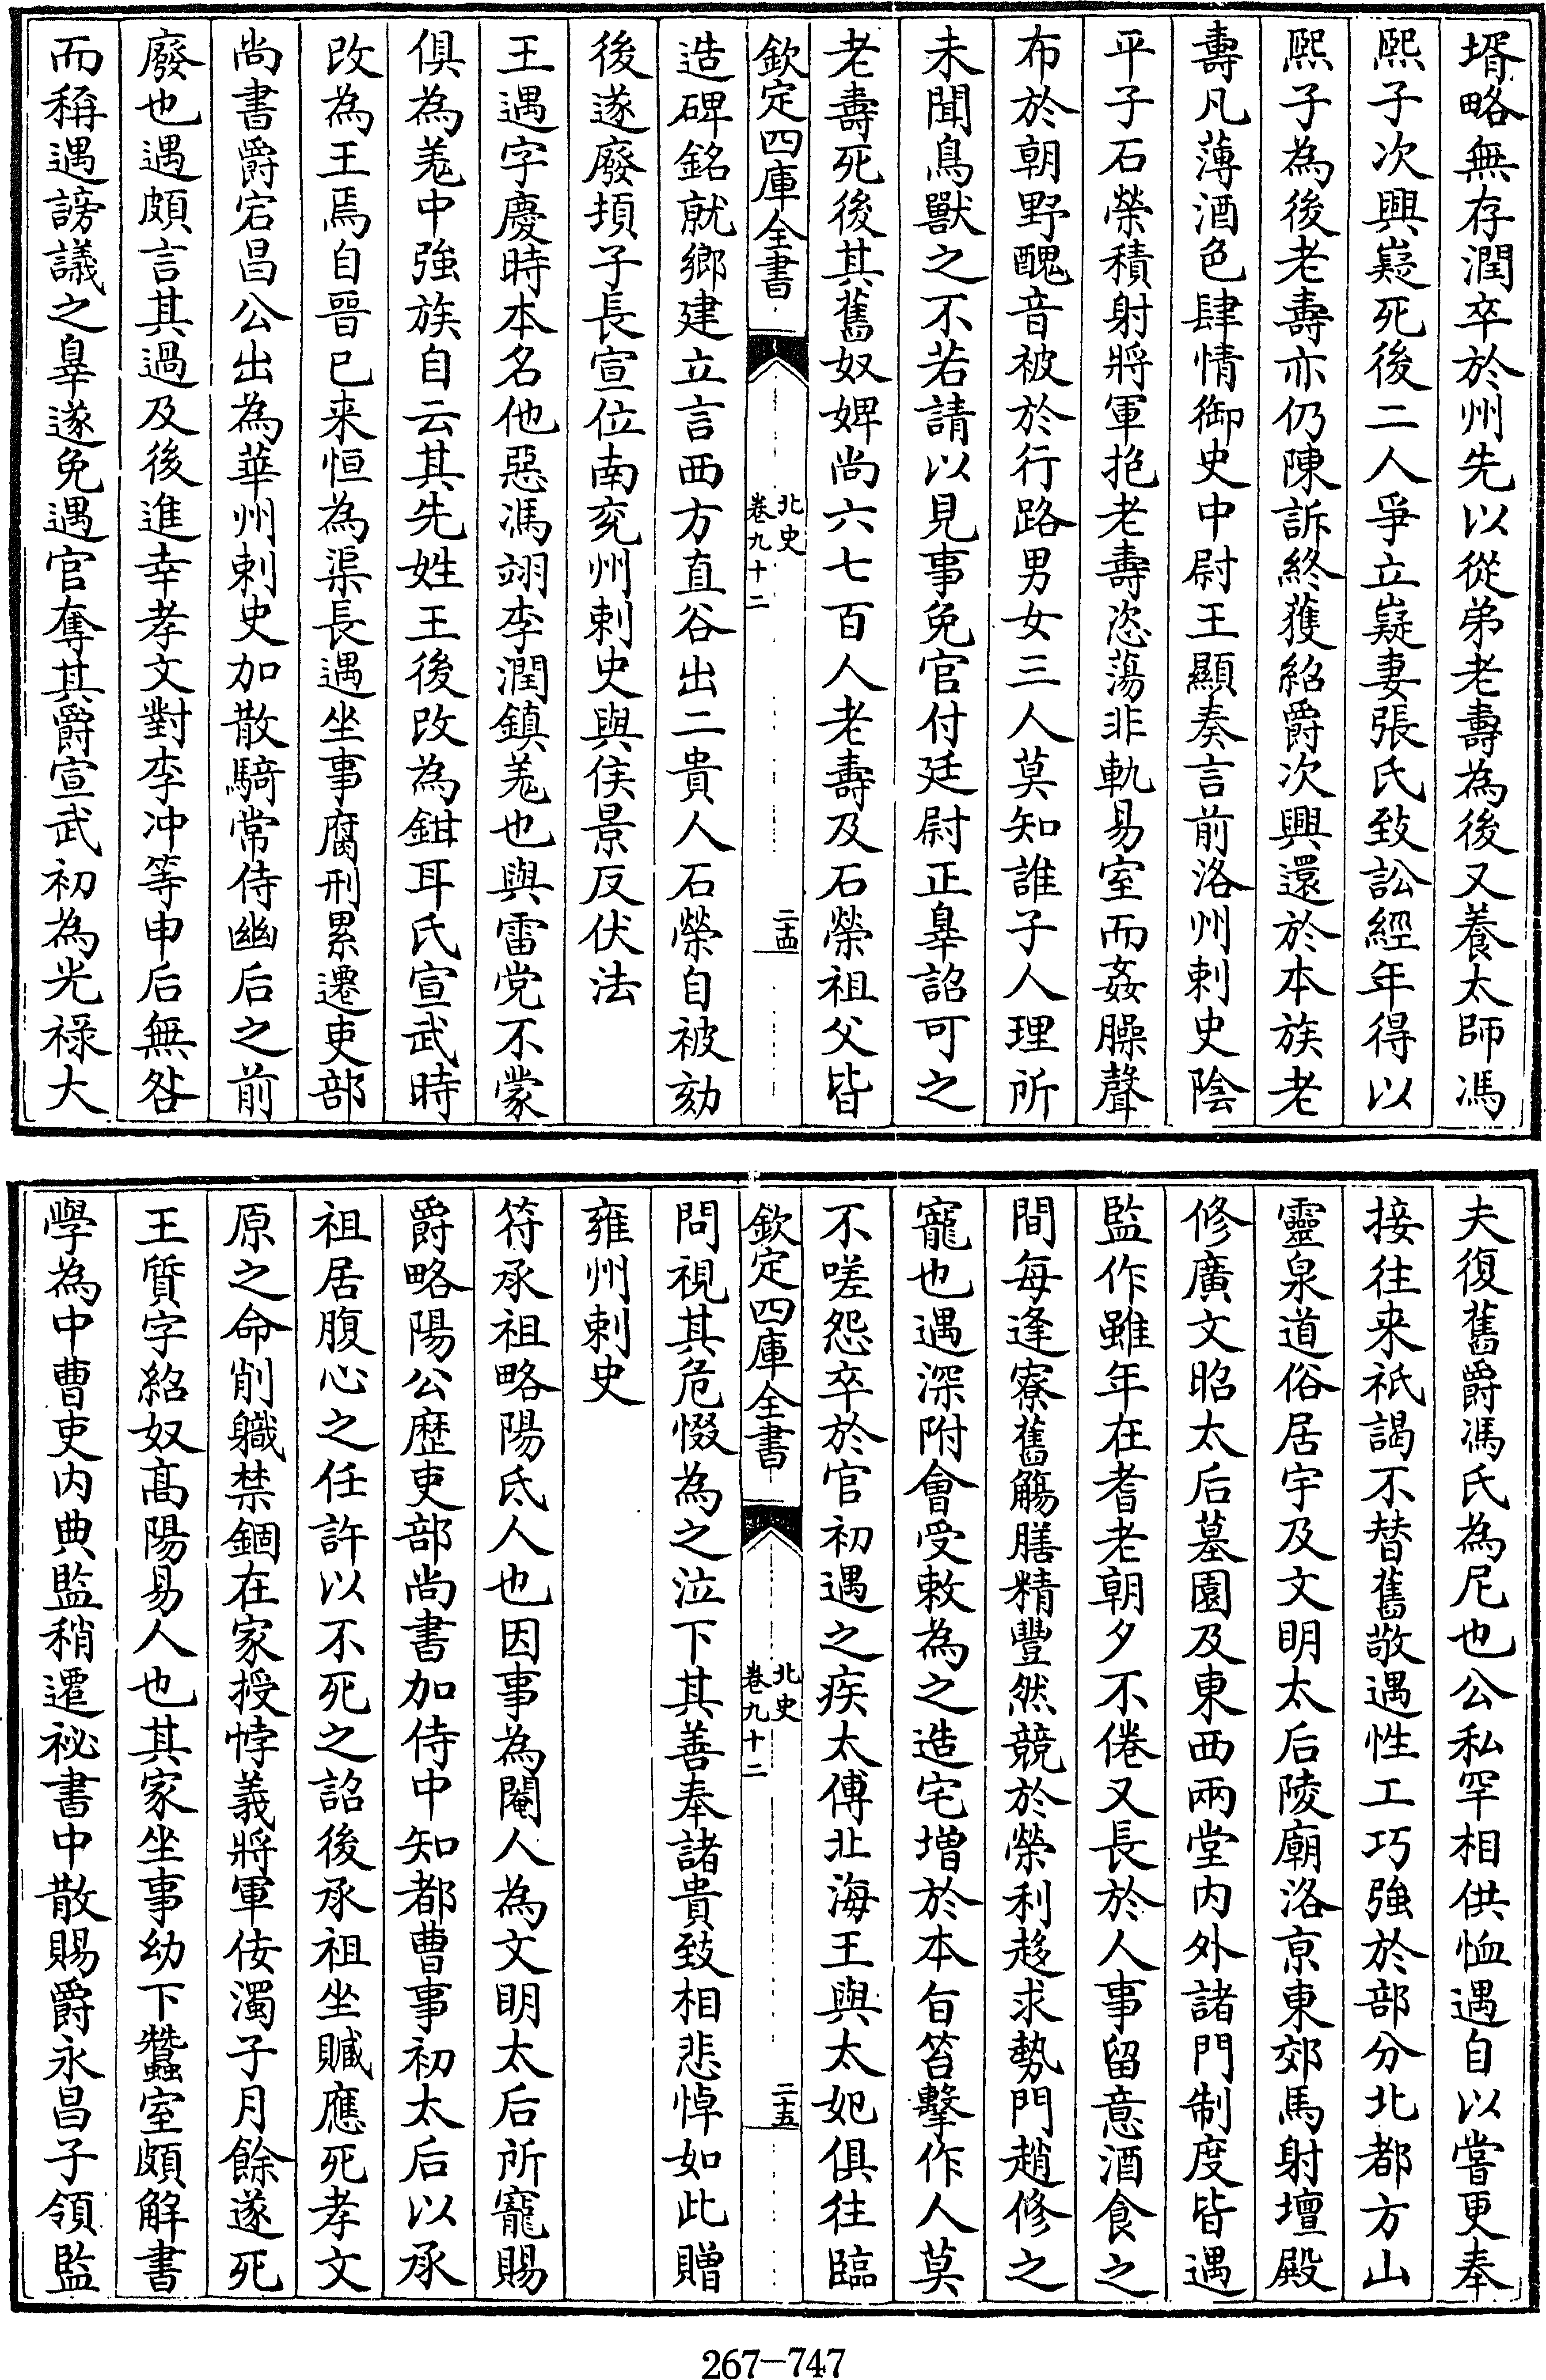 壻略無存潤卒於州先以從弟老壽為後又養太師馮
熈子次興嶷死後二人爭立嶷妻張氏致訟經年得以
熈子為後老壽亦仍陳訴終獲紹爵次興還於本族老
壽凡薄酒色肆情御史中尉王顯奏言前洛州刺史陰
平子石榮積射將軍抱老壽恣蕩非軌易室而姦臊聲
布於朝野醜音被於行路男女三人莫知誰子人理所
未聞鳥獸之不若請以見事免官付廷尉正辠詔可之
老壽死後其舊奴婢尚六七百人老壽及石榮祖父皆
欽定四庫全書
北史
卷九十二
二十四
造碑銘就鄉建立言西方直谷出二貴人石榮自被劾
後遂廢頓子長宣位南兖州刺史與侯景反伏法
王遇字慶時本名他惡馮翊李潤鎮羌也與雷党不蒙
俱為羌中強族自云其先姓王後改為鉗耳氏宣武時
改為王焉自晉已来恒為渠長遇坐事腐刑累遷吏部
尚書爵宕昌公出為華州刺史加散騎常侍幽后之前
廢也遇頗言其過及後進幸孝文對李冲等申后無咎
而稱遇謗議之辠遂免遇官奪其爵宣武初為光祿大
夫復舊爵馮氏為尼也公私罕相供恤遇自以嘗更奉
接往来祇謁不替舊敬遇性工巧強於部分北都方山
靈泉道俗居宇及文明太后陵廟洛京東郊馬射壇殿
修廣文昭太后墓園及東西兩堂内外諸門制度皆遇
監作雖年在耆老朝夕不倦又長於人事留意酒食之
間每逢寮舊觴膳精豐然競於榮利趍求勢門趙修之
寵也遇深附會受敕為之造宅増於本旨笞擊作人莫
不嗟怨卒於官初遇之疾太傅北海王與太妃俱往臨
欽定四庫全書
北史
卷九十二
二十五
問視其危惙為之泣下其善奉諸貴致相悲悼如此贈
雍州刺史
符承祖略陽氐人也因事為閹人為文明太后所寵賜
爵略陽公歴吏部尚書加侍中知都曹事初太后以承
祖居腹心之任許以不死之詔後承祖坐贓應死孝文
原之命削職禁錮在家授悖義將軍佞濁子月餘遂死
王質字紹奴髙陽易人也其家坐事幼下蠶室頗解書
學為中曹吏内典監稍遷祕書中散賜爵永昌子領監
267-747